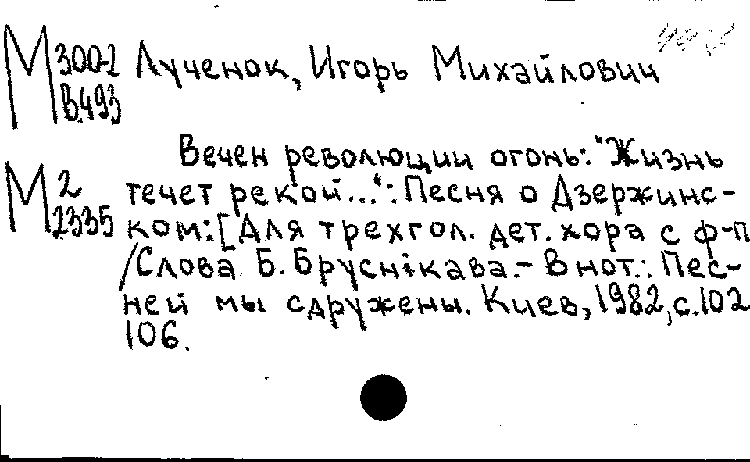 М 300-2 Лученок, Игорь Михайлович
В.493
Вечен революции огонь: "Жизнь
М 2 течет рекой...": Песня о Дзержинс-
2335 ком: [Для трехгол. дет. хора с ф-п
/Слова Б. Бруснікава. - В нот.: Пес-
ней мы сдружены. Киев, 1982, с.102
106.